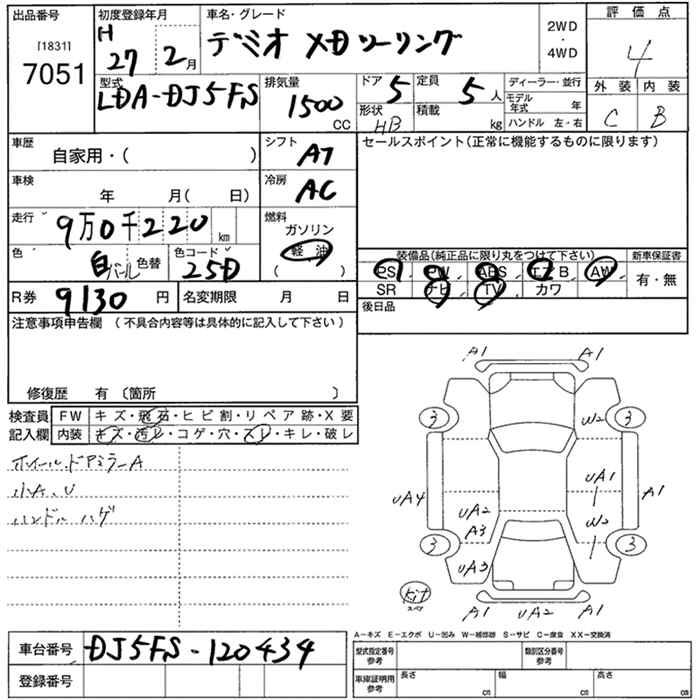 出品番号
[1831]
7051
初度登録年月
H
27 2月
車名・グレード
デミオ XDツーリング
2WD
・
4WD
評価点
4
外装 内装
C B
型式
LDA-DJ5FS
排気量
1500
CC
ドア 5
形状 HB
定員 5人
積載 kg
ディーラー・並行
モデル年式 年
ハンドル 左・右
車歴
自家用・( )
シフト
AT
セールスポイント(正常に機能するものに限ります)
車検
年 月( 日)
冷房
AC
走行
9万0千220 km
燃料
ガソリン
軽油
( )
色
白パール
色替
色コード
25D
装備品(純正品に限り丸をつけて下さい)
新車保証書
PS PW ABS エアB AW
SR ナビ TV カワ
有・無
R券 9130円
名変期限 月 日
後日品
注意事項申告欄 (不具合内容等は具体的に記入して下さい)
修復歴 有 〔箇所 〕
検査員記入欄
FW キズ・飛石・ヒビ割・リペア跡・X要
内装 キズ・汚レ・コゲ・穴・スレ・キレ・破レ
ホイール・ドアミラーA
小A、U
ハンドル ハゲ
A1 A1
3 W2 3
UA1
UA4 A1
UA2 W2
A3
3 3
UA3
kit
スペア
A1 UA2 A1
A-キズ E-エクボ U-凹み W-補修跡 S-サビ C-腐食 XX-交換済
車台番号 DJ5FS-120434
登録番号
型式指定番号
参考
類別区分番号
参考
車庫証明用
参考
長さ cm
幅 cm
高さ cm